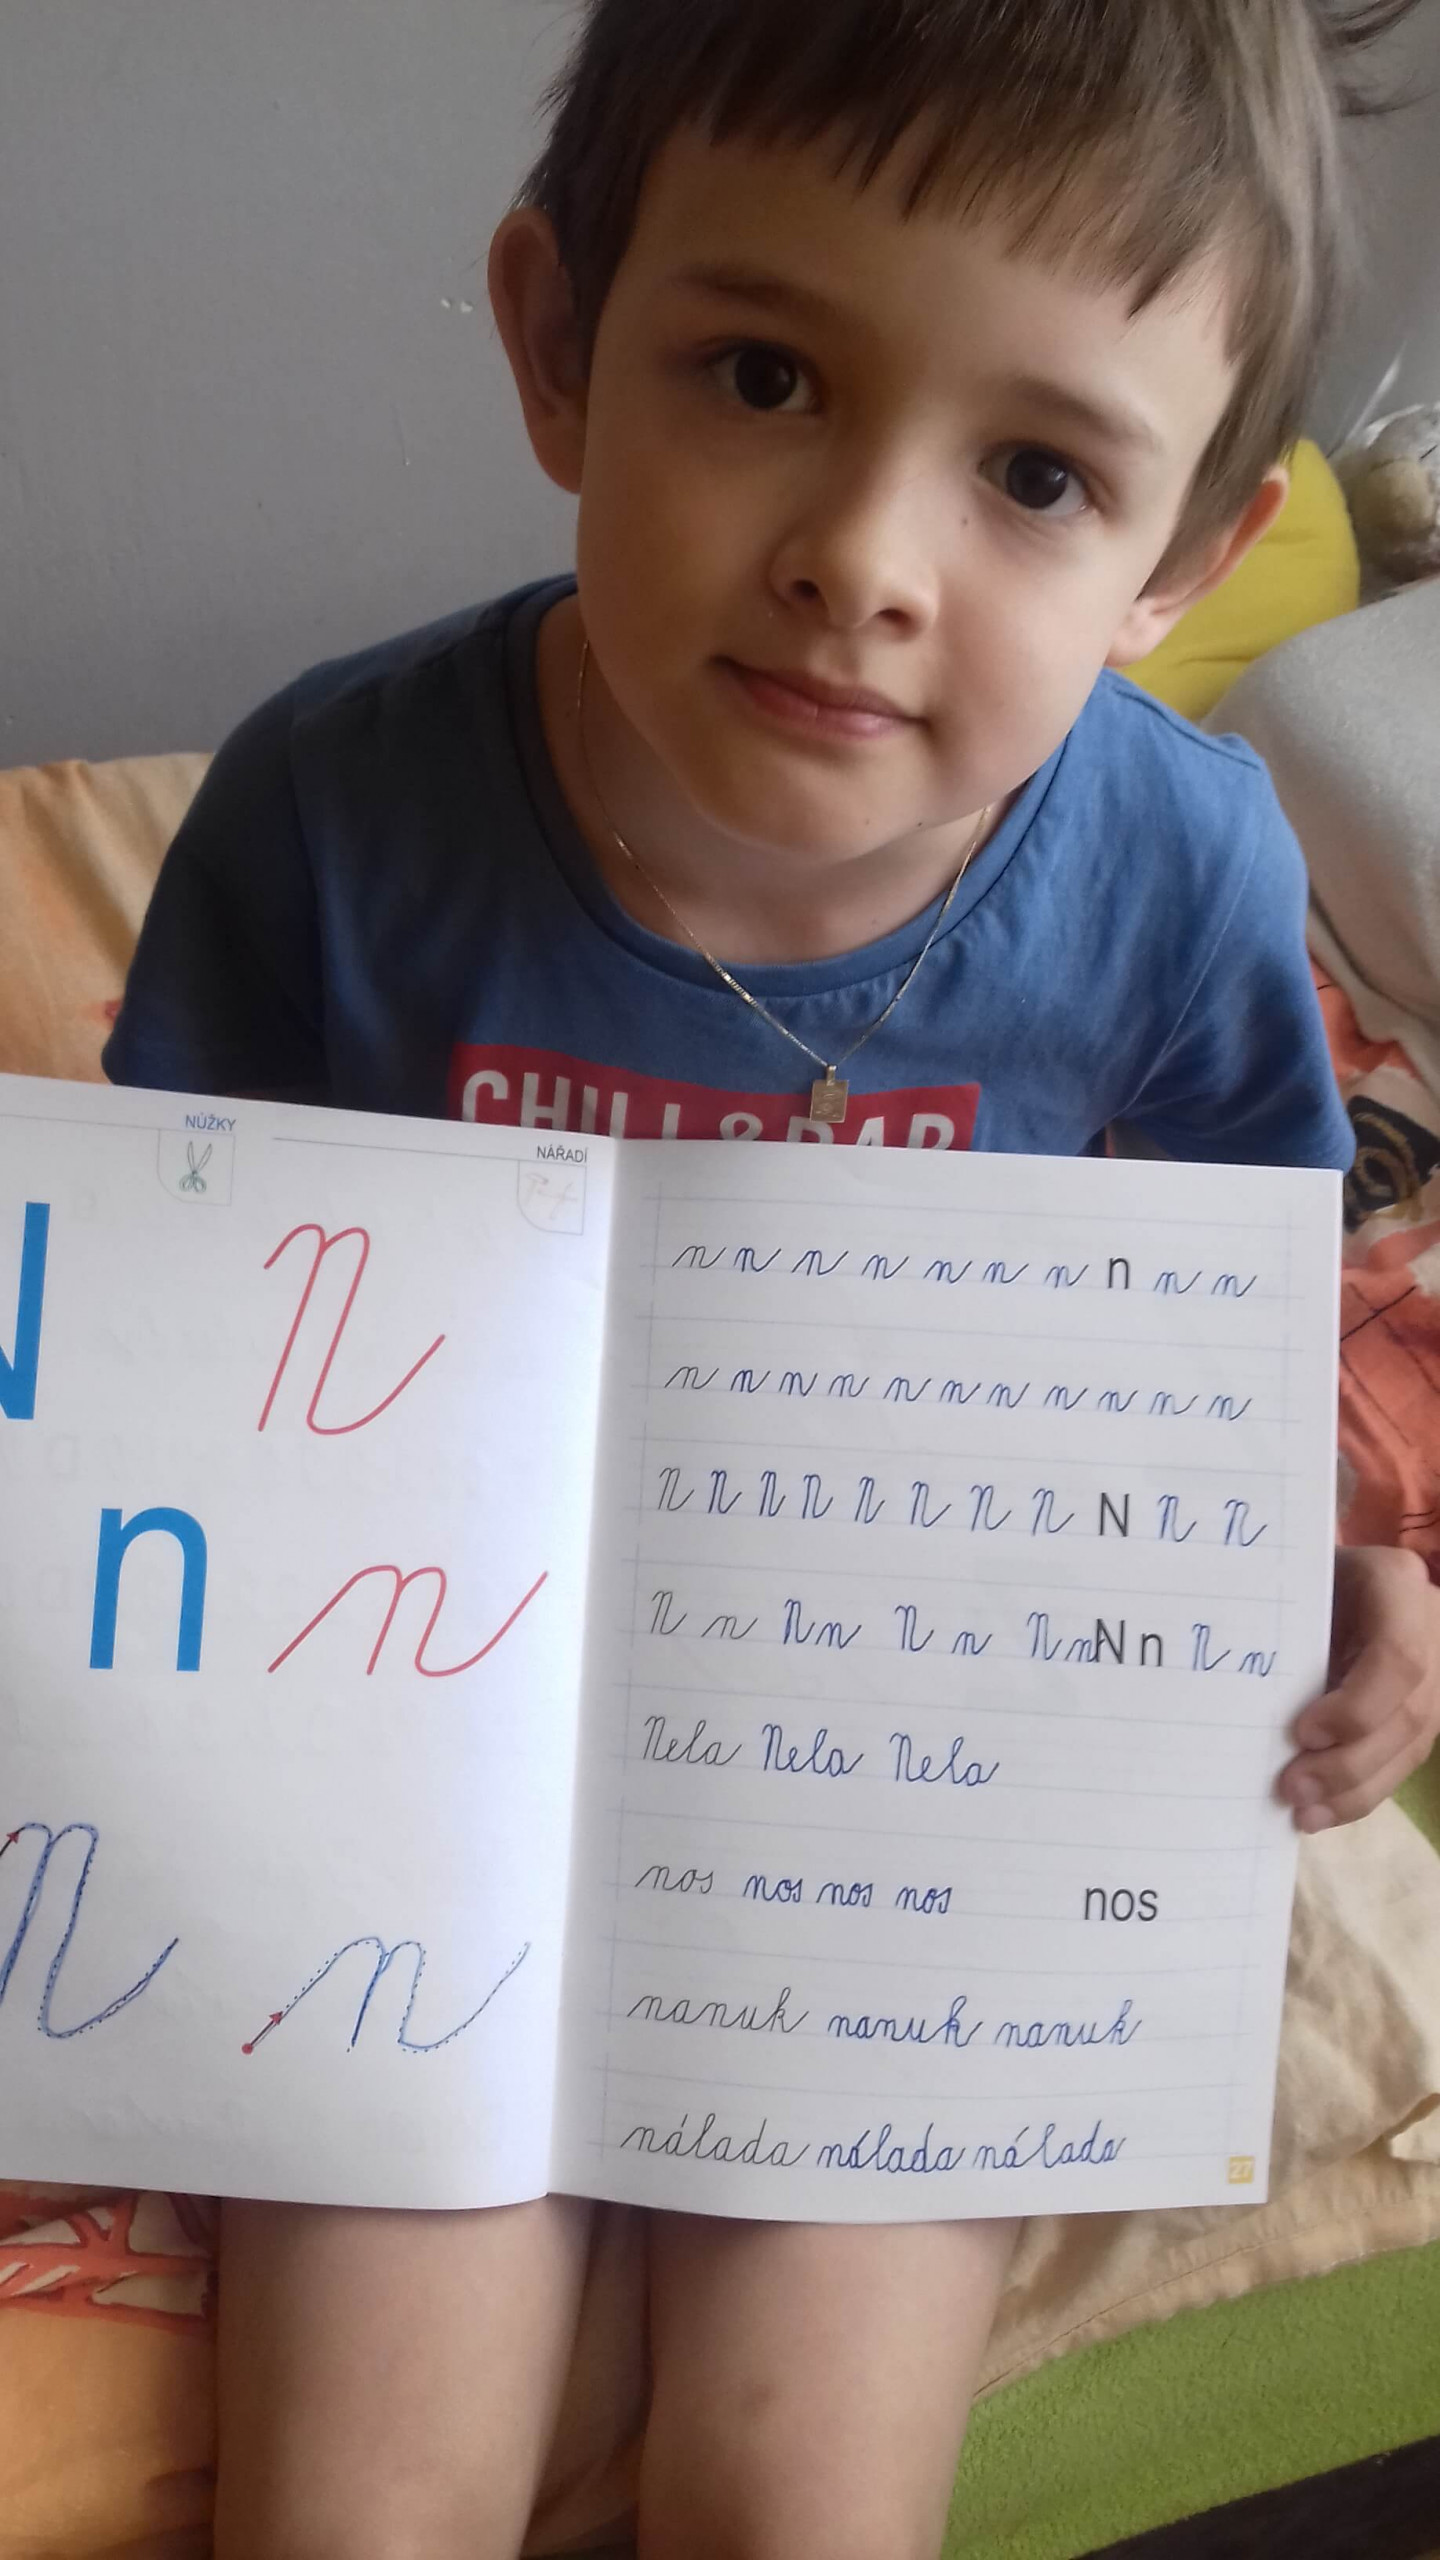 CHILL &
NŮŽKY
NÁŘADÍ
N N
n n
N n
n n n n n n n n n n
n n n n n n n n n n n
N N N N N N N N N N N
N n N n N n N n N n N n
Nela Nela Nela
nos nos nos nos nos
nanuk nanuk nanuk
nálada nálada nálada
27